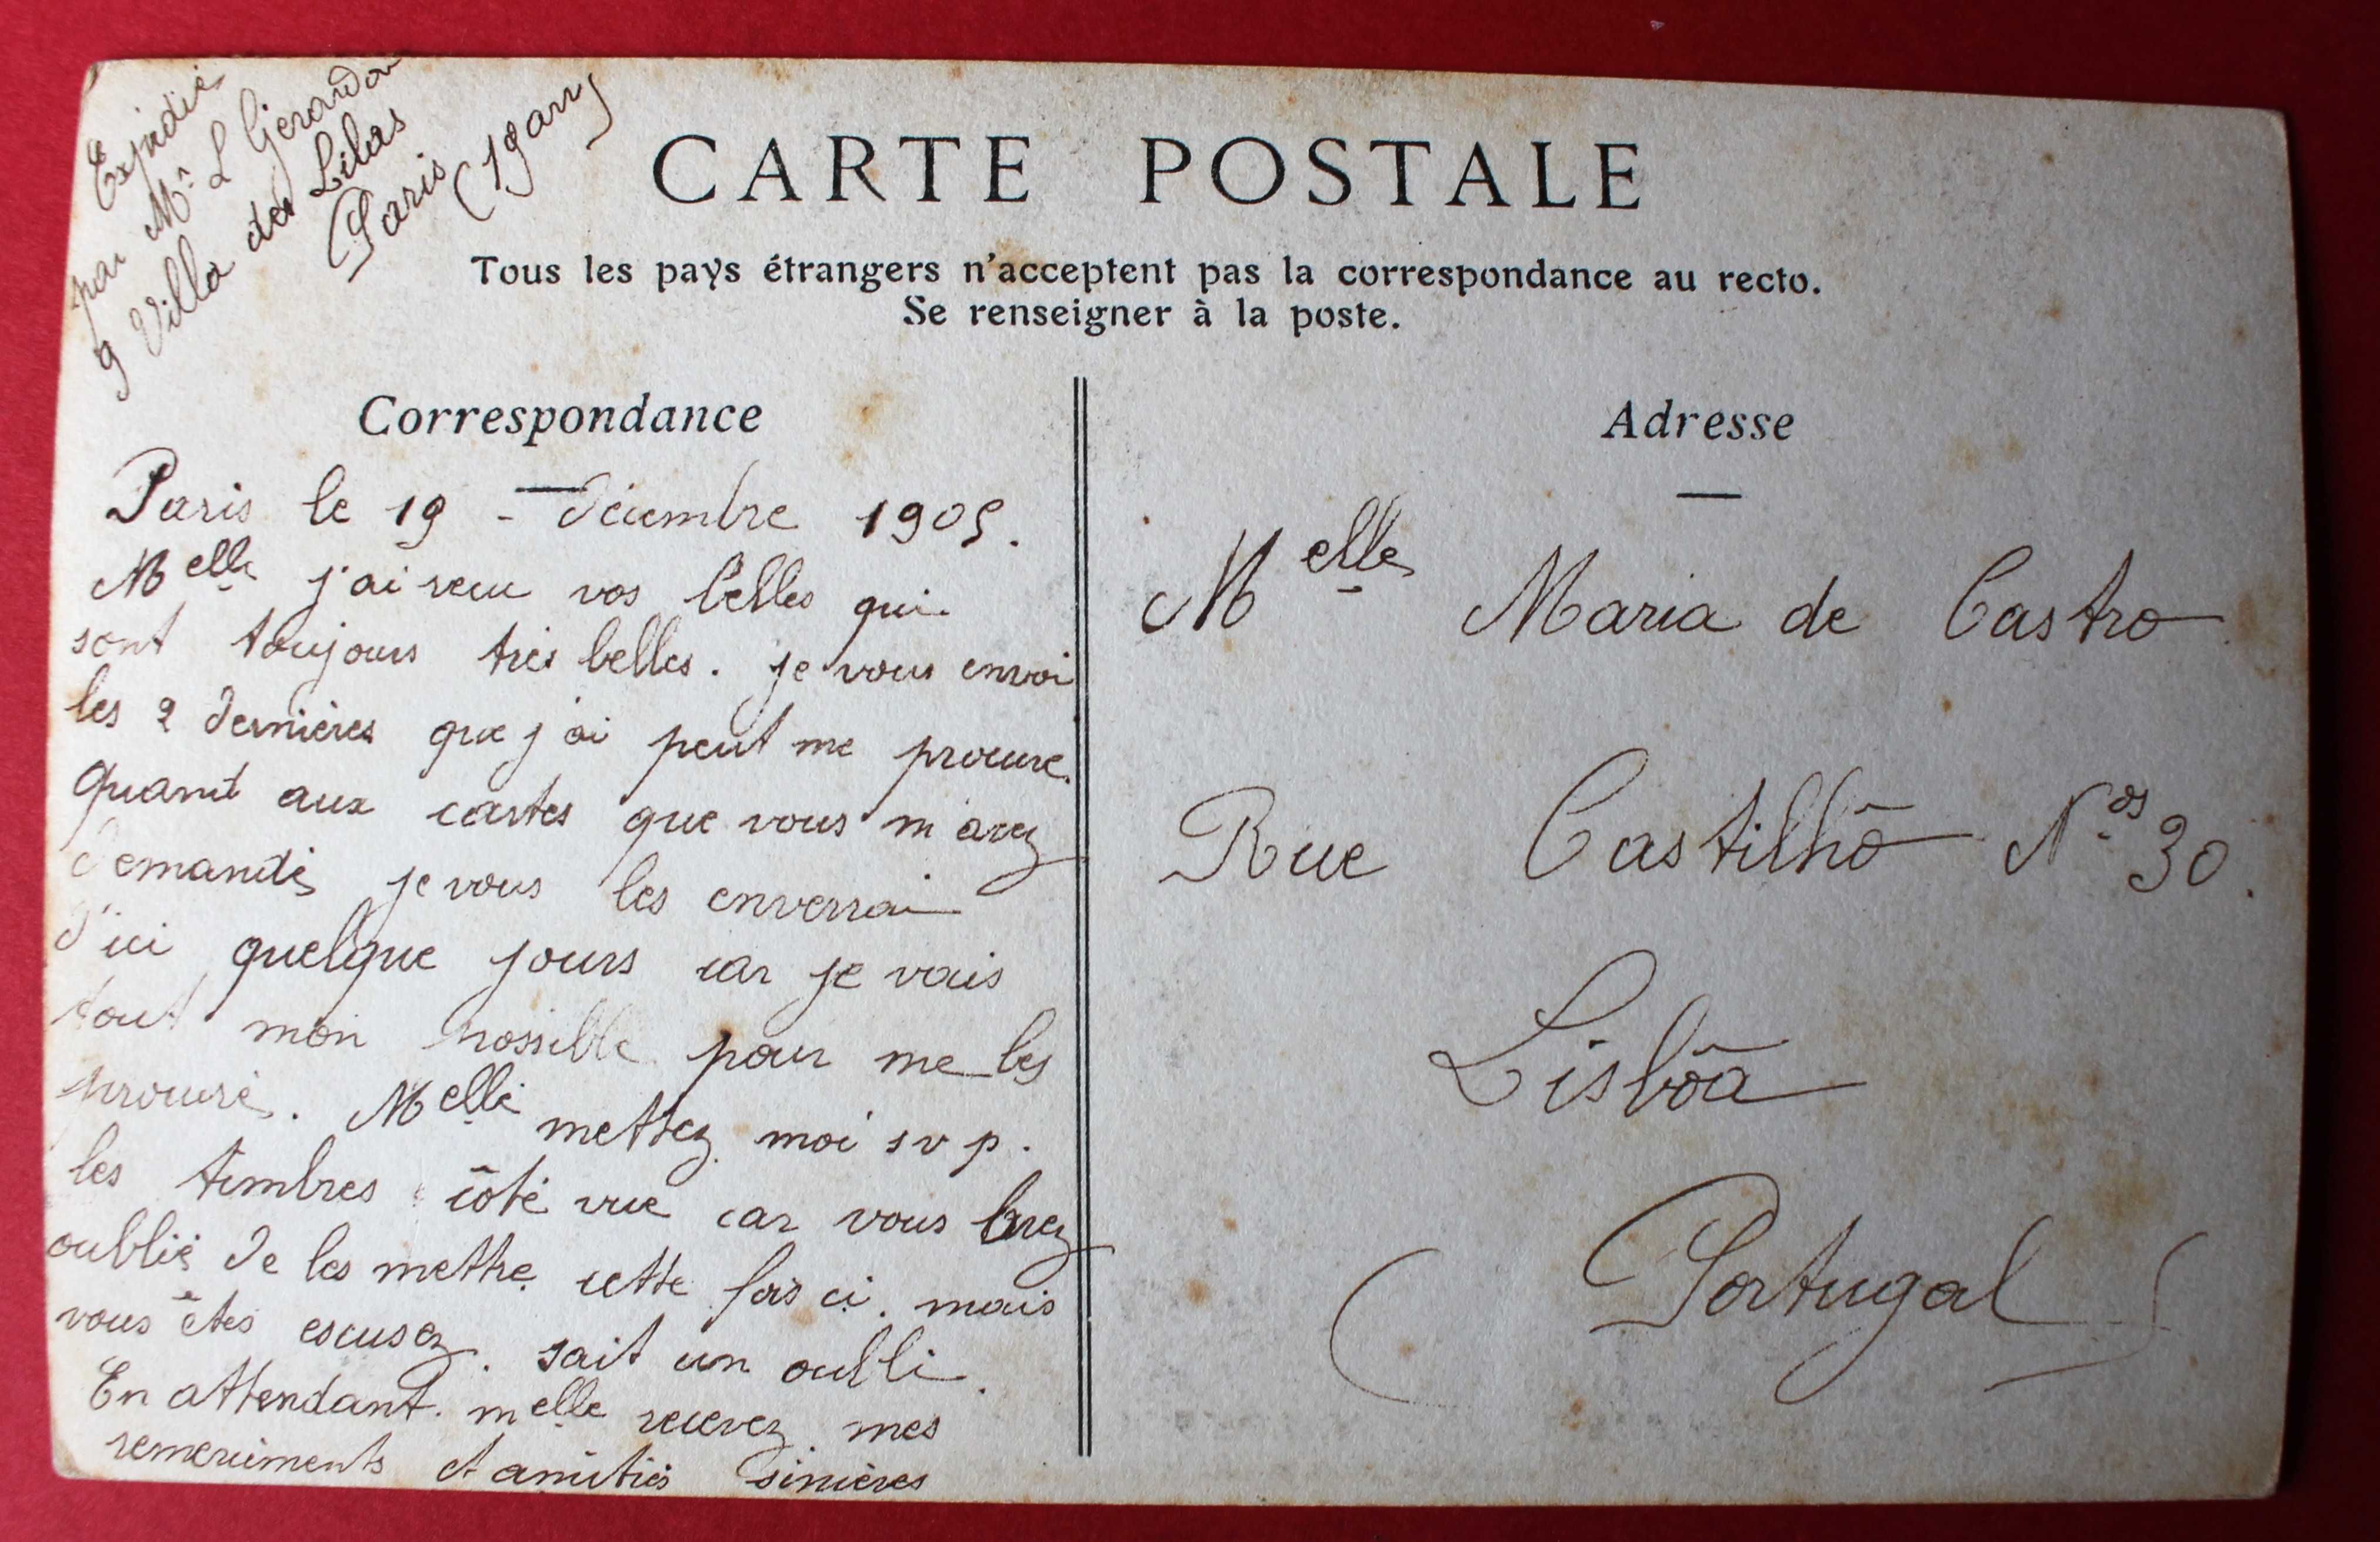 Expédié
par Mr L Gerardon
9 Villa des Lilas
Paris (19 arr)
CARTE POSTALE
Tous les pays étrangers n'acceptent pas la correspondance au recto.
Se renseigner à la poste.
Correspondance
Paris le 19 - Décembre 1905.
Melle j'ai recu vos belles qui
sont toujours très belles. je vous envoi
les 2 dernières que j'ai peut me procure.
Quant aux cartes que vous m'avez
demandés je vous les enverrai
d'ici quelque jours car je vais
tout mon possible pour me les
procuré. Melle mettez moi svp.
les timbres côté vue car vous avez
oubliè de les mettre cette fois ci. mais
vous êtes escusez. sait un oubli.
En attendant. melle recevez mes
remerciments et amitiés sincères
Adresse
Melle Maria de Castro
Rue Castilhô Nos 30.
Lisbôa
(Portugal)